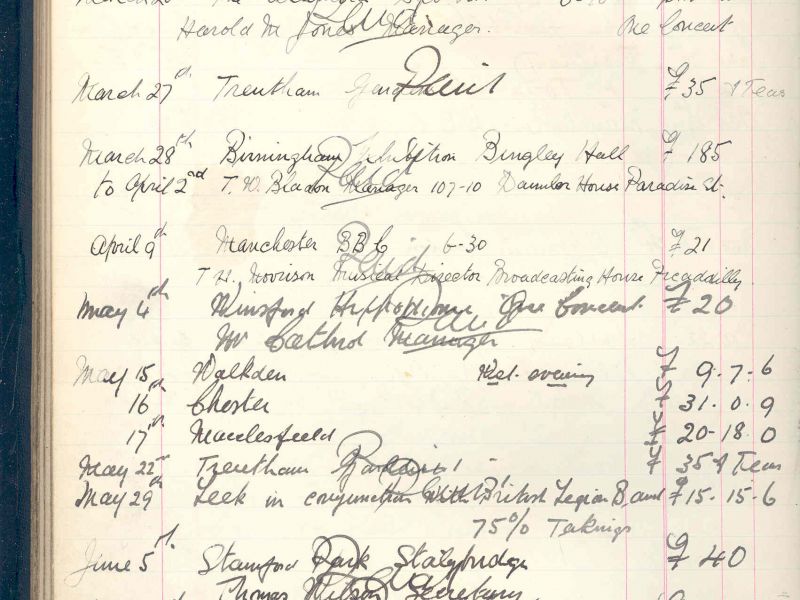 Harold M Jones Manager. One Concert
March 27th Trentham Gardens Paid £35 & Teas
March 28th Birmingham Exhibition Bingley Hall £185
to April 2nd T. W. Bladon Manager 107-10 Daimler House Paradise St.
Paid
April 9th Manchester BBC 6-30 £21
Paid
T H. Morrison Musical Director Broadcasting House Piccadilly
May 4th Winsford Hippodrome One Concert £20
Mr Manager
Paid
May 15th Walkden Wed. evening £9-7-6
16 Chester £31.0.9
17th Macclesfield £20-18.0
May 22nd Trentham Gardens £35 & Teas
May 29th Leek in conjunction with British Legion Band £15-15-6
75% Takings
June 5th Stamford Park Stalybridge £40
Thomas Wilson Secretary
Paid